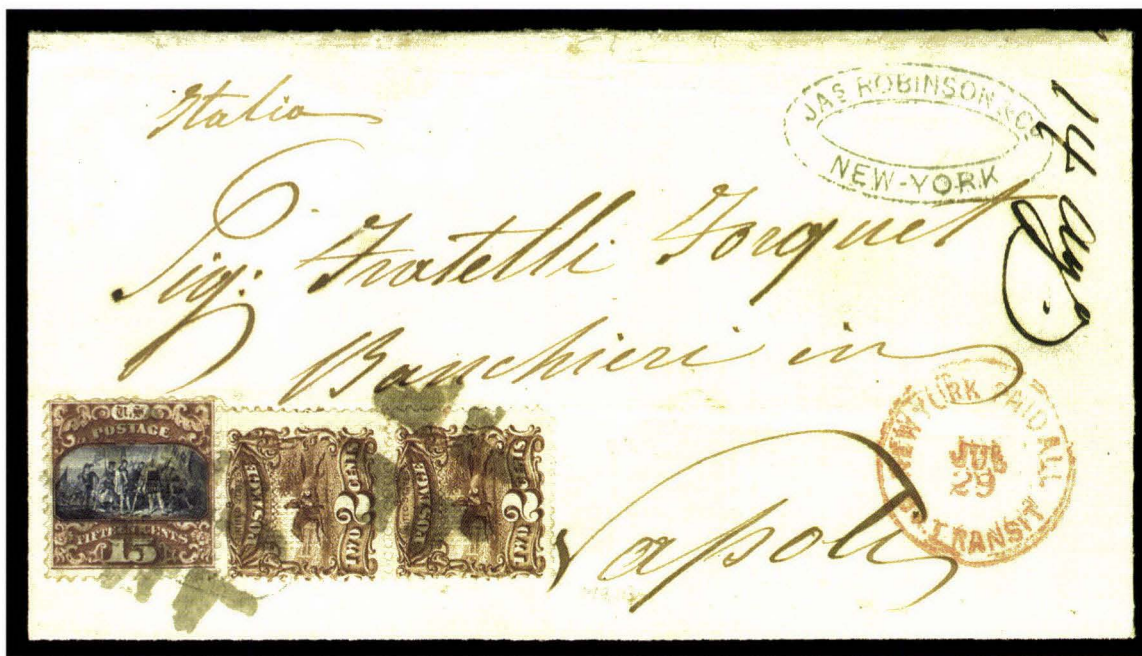 Italia
JAS ROBINSON & Co
NEW-YORK
14 ag°
Sig: Fratelli Forquet
Banchieri in
Napoli
NEW YORK PAID ALL
JUL
29
BR. TRANSIT
U.S.
POSTAGE
FIFTEEN CENTS
15
POSTAGE
2
TWO CENTS
POSTAGE
2
TWO CENTS